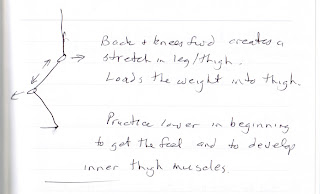 Back + knees fwd creates a
stretch in leg/thigh.
Loads the weight into thigh.
Practice lower in beginning
to get the feel and to develop
inner thigh muscles